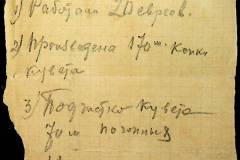 1) Работали 2 Деврсов.
2) Произведена 170 м. копки
кувета
3) Подчистко Кувета
70 м погонных